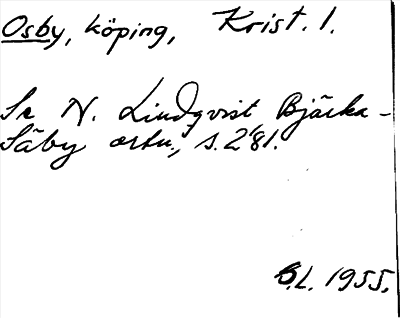 Osby, köping, Krist. l.
Se N. Lindqvist Bjärka-
Säby ortn., s. 281.
B.L. 1955.